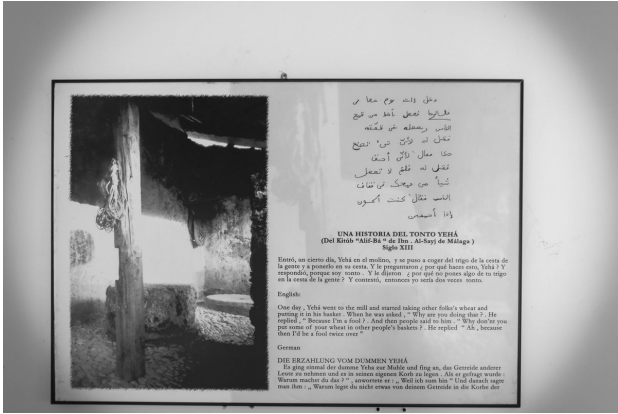 دخل ذات يوم جحا في
الناس
فقيل له لأي شيء تصنع
هذا فقال لأني أحمق
فقيل له فلم لا تجعل
شيئا من قمحك في قفاف
الناس فقال كنت أكون
إذا أحمقين
UNA HISTORIA DEL TONTO YEHÁ
(Del Kitúb "Alif-Bá " de Ibn . Al-Sayj de Málaga )
Siglo XIII
Entró, un cierto día, Yehá en el molino, y se puso a coger del trigo de la cesta de
la gente y a ponerlo en su cesta. Y le preguntaron ¿ por qué haces esto, Yehá ? Y
respondió, porque soy tonto . Y le dijeron ¿ por qué no poses algo de tu trigo
en la cesta de la gente ? Y contestó, entonces yo sería dos veces tonto.
English:
One day , Yehá went to the mill and started taking other folke's wheat and
putting it in his basket . When he was asked , " Why are you doing that ? . He
replied , " Because I'm a fool ? . And then people said to him . " Why don'at you
put some of your wheat in other people's baskets ? . He replied " Ah , because
then I'd be a fool twice over "
German
DIE ERZAHLUNG VOM DUMMEN YEHÁ
Es ging einmal der dumme Yeha zur Muhle und fing an, das Getreide anderer
Leute zu nehmen und es in seinen eigenen Korb zu legen . Als er gefragt wurde :
Warum machst du das ? " , anwortete er : „ Weil ich zum bin " Und danach sagte
man ihm : „ Warum legst du nicht etwas von deinem Getreide in die Korbe der